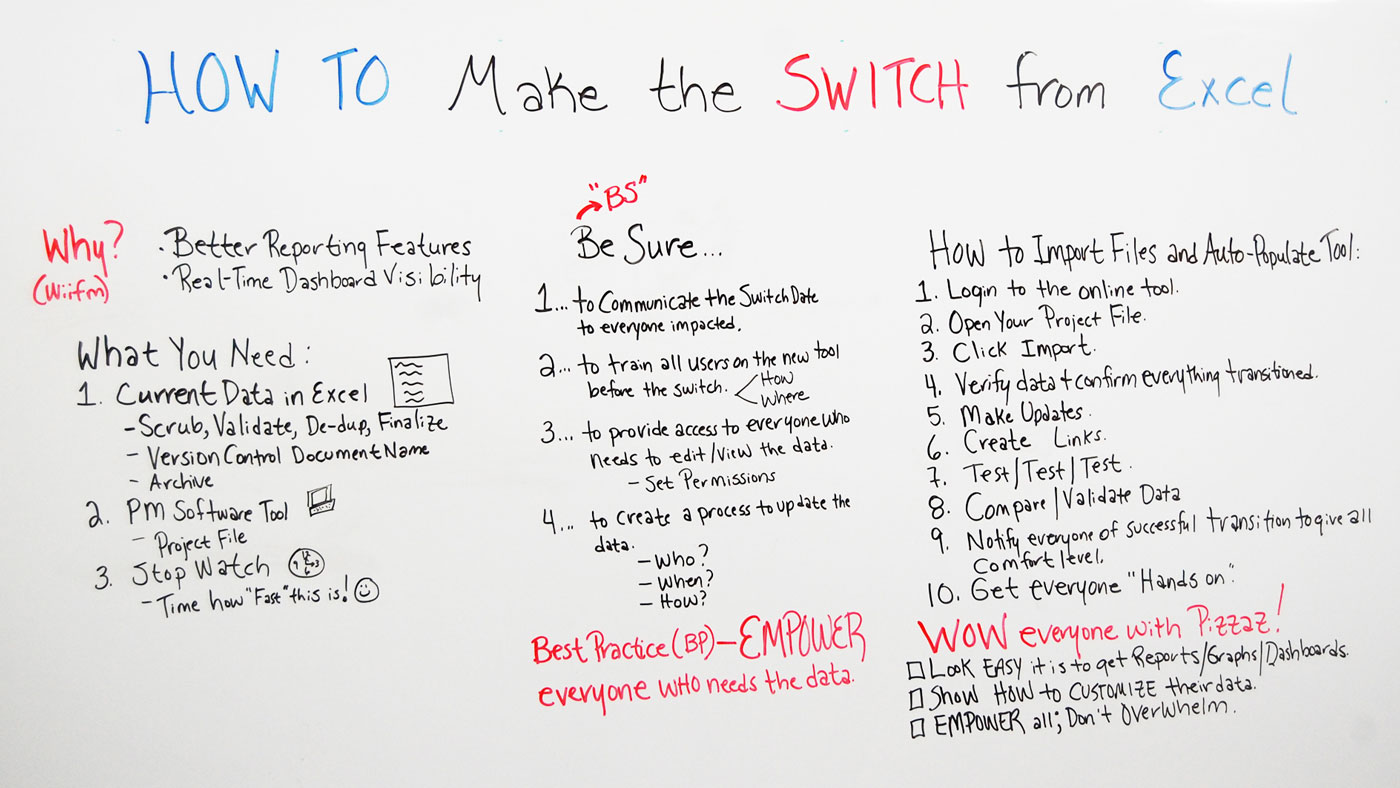 HOW TO Make the SWITCH from Excel
Why?
(Wiifm)
· Better Reporting Features
· Real-Time Dashboard Visibility
What You Need:
1. Current Data in Excel
- Scrub, Validate, De-dup, Finalize
- Version Control Document Name
- Archive
2. PM Software Tool
- Project File
3. Stop Watch
12
9 3
6
- Time how "Fast" this is!
"BS"
Be Sure...
1... to Communicate the Switch Date
to everyone impacted.
2... to train all users on the new tool
before the switch.
How
Where
3... to provide access to everyone who
needs to edit/view the data.
- Set Permissions
4... to create a process to update the
data.
- Who?
- When?
- How?
Best Practice (BP) - EMPOWER
everyone WHO needs the data.
How to Import Files and Auto-Populate Tool:
1. Login to the online tool.
2. Open Your Project File.
3. Click Import.
4. Verify data + confirm everything transitioned.
5. Make Updates.
6. Create Links.
7. Test/Test/Test.
8. Compare/Validate Data
9. Notify everyone of successful transition to give all
comfort level.
10. Get everyone "Hands on".
WOW everyone with Pizzaz!
□ Look EASY it is to get Reports/Graphs/Dashboards.
□ Show HOW to CUSTOMIZE their data.
□ EMPOWER all; Don't Overwhelm.